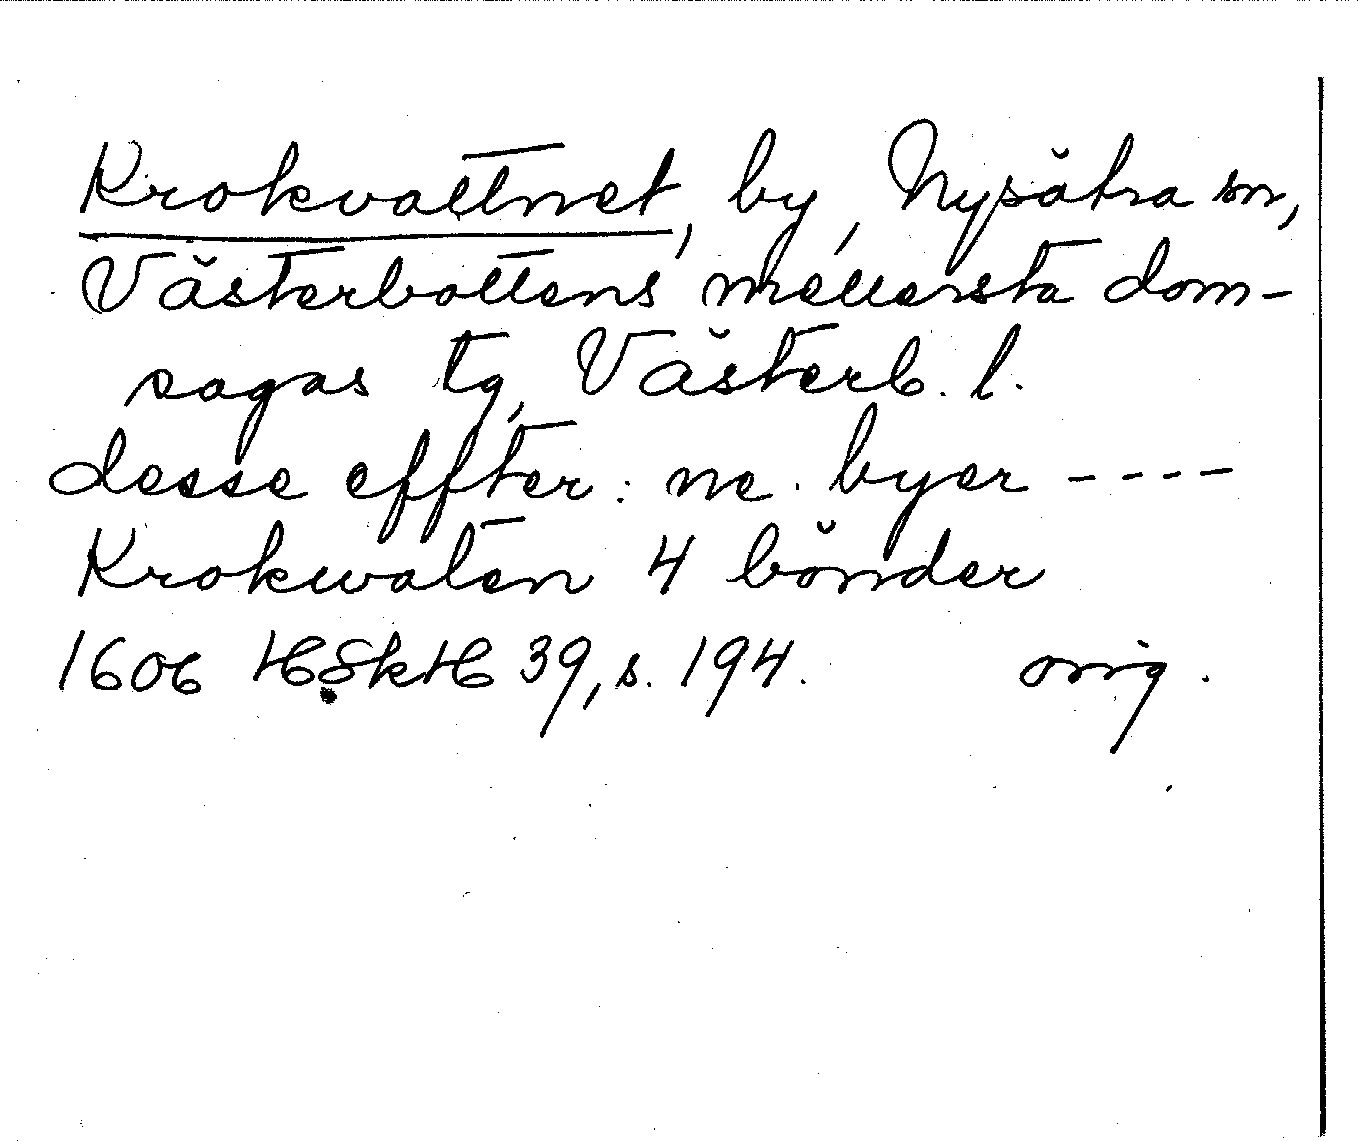 Krokvattnet, by, Nysätra sn,
Västerbottens mellersta dom-
sagas tg, Västerb. l.
desse effter: ne. byer ----
Krokwaten 4 bönder
1606 HSkH 39, s. 194. orig.